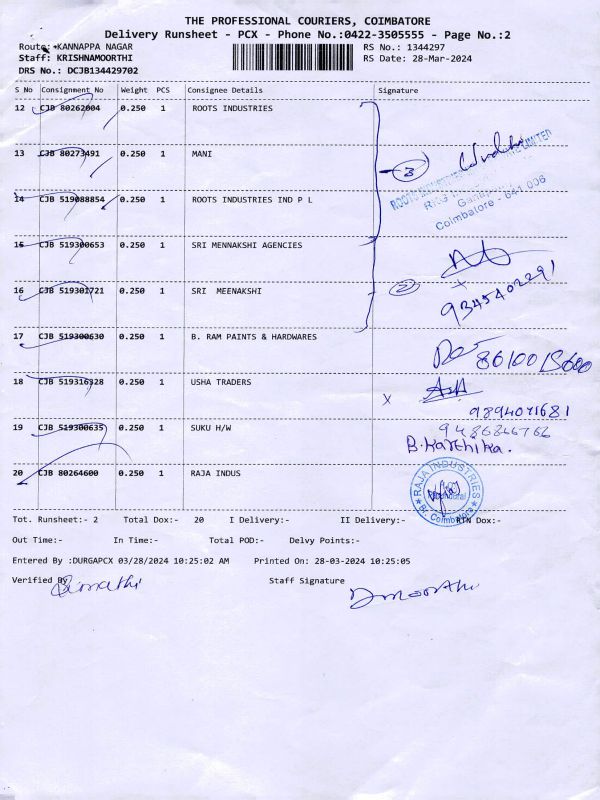 THE PROFESSIONAL COURIERS, COIMBATORE
Delivery Runsheet - PCX - Phone No.:0422-3505555 - Page No.:2
Route: KANNAPPA NAGAR
RS No.: 1344297
Staff: KRISHNAMOORTHI
RS Date: 28-Mar-2024
DRS No.: DCJB134429702
S No Consignment No Weight PCS Consignee Details Signature
12 CJB 80262004 0.250 1 ROOTS INDUSTRIES
13 CJB 80273491 0.250 1 MANI
3
LIMITED
14 CJB 519088854 0.250 1 ROOTS INDUSTRIES IND P L
Coimbatore - 641 006
15 CJB 519300653 0.250 1 SRI MENNAKSHI AGENCIES
16 CJB 519301721 0.250 1 SRI MEENAKSHI
2
9345402291
17 CJB 519300630 0.250 1 B. RAM PAINTS & HARDWARES
8610015600
18 CJB 519316328 0.250 1 USHA TRADERS
X
9894071681
19 CJB 519300635 0.250 1 SUKU H/W
9486846766
B.Karthika.
20 CJB 80264600 0.250 1 RAJA INDUS
RAJA INDUSTRIES
Coimbatore
Tot. Runsheet:- 2 Total Dox:- 20 I Delivery:- II Delivery:- RTN Dox:-
Out Time:- In Time:- Total POD:- Delvy Points:-
Entered By :DURGAPCX 03/28/2024 10:25:02 AM Printed On: 28-03-2024 10:25:05
Verified By
Staff Signature